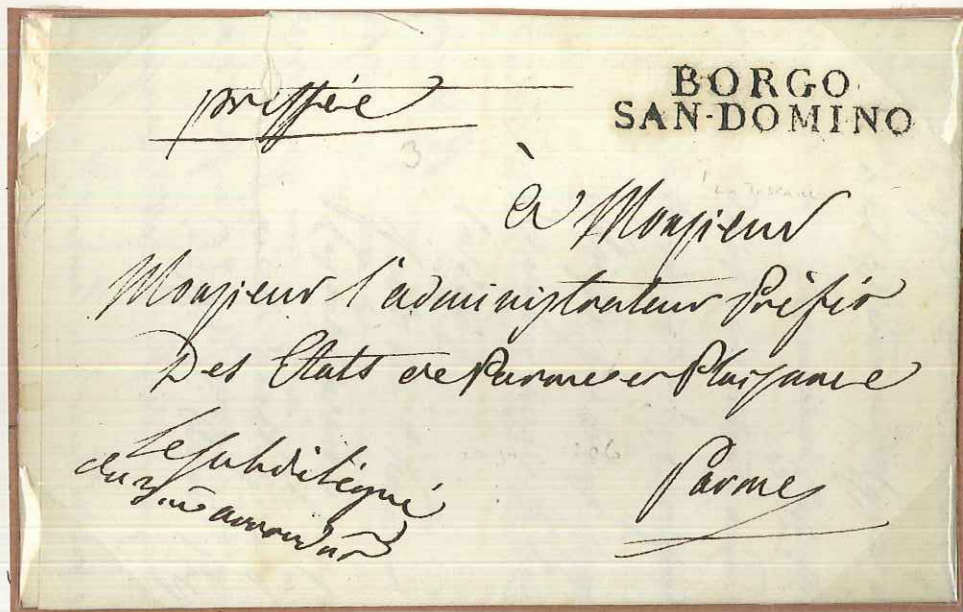 pressée
BORGO
SAN-DOMINO
3
à Monsieur
Monsieur l'administrateur Préfét
Des Etats de Parme et Plaisance
Parme
Le subdélégué
du 3.me arrondt